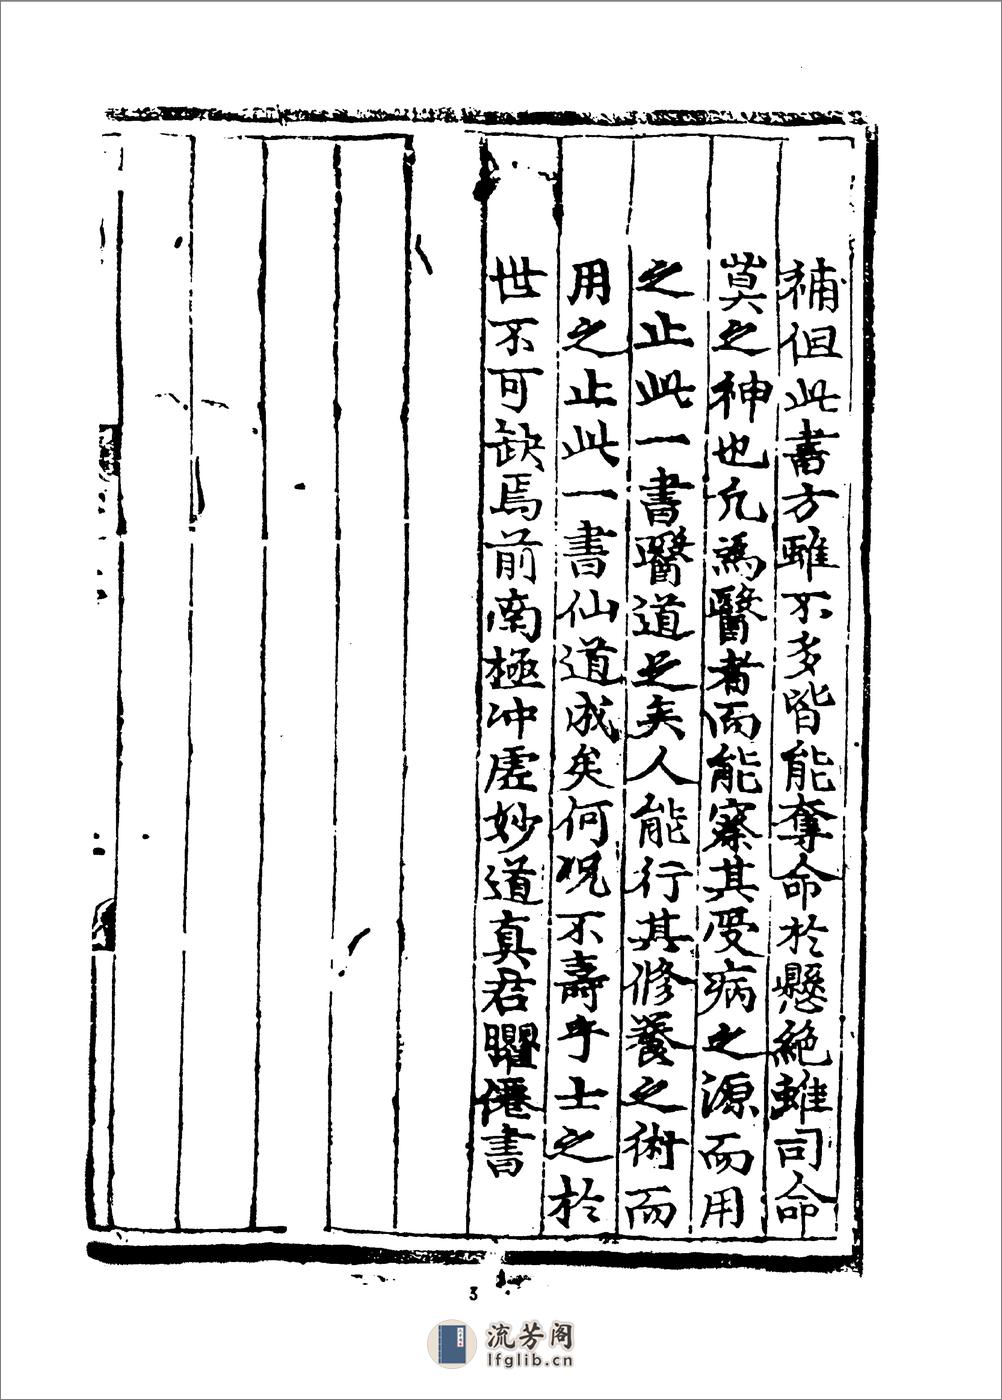 補但此書方雖不多皆能奪命於懸絶雖司命
莫之神也凢為醫者而能察其受病之源而用
之止此一書醫道足矣人能行其修養之術而
用之止此一書仙道成矣何况不壽乎士之於
世不可缺焉前南極冲虛妙道真君臞僊書
3
流芳阁
lfglib.cn